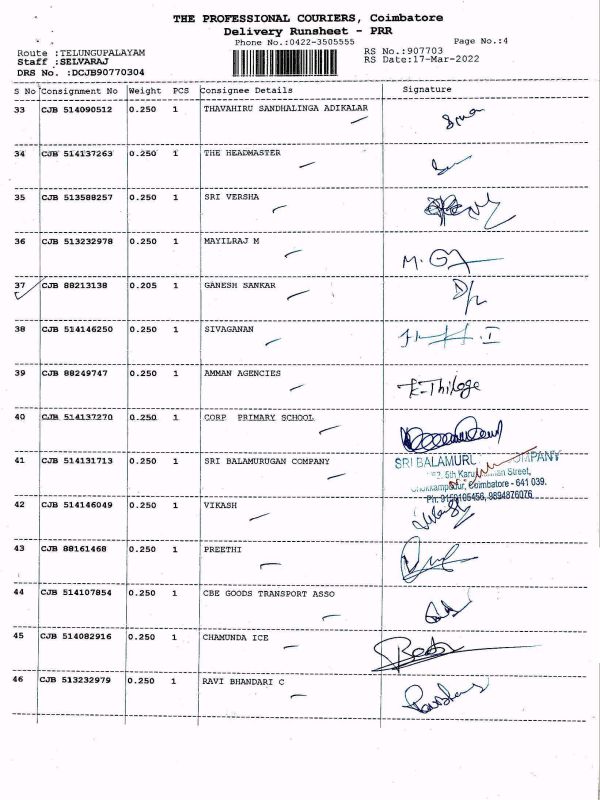 THE PROFESSIONAL COURIERS, Coimbatore
Delivery Runsheet - PRR
Phone No.:0422-3505555 Page No.:4
Route :TELUNGUPALAYAM RS No.:907703
Staff :SELVARAJ RS Date:17-Mar-2022
DRS No. :DCJB90770304
S No Consignment No Weight PCS Consignee Details Signature
33 CJB 514090512 0.250 1 THAVAHIRU SANDHALINGA ADIKALAR
34 CJB 514137263 0.250 1 THE HEADMASTER
35 CJB 513588257 0.250 1 SRI VERSHA
36 CJB 513232978 0.250 1 MAYILRAJ M
37 CJB 88213138 0.205 1 GANESH SANKAR
38 CJB 514146250 0.250 1 SIVAGANAN
39 CJB 88249747 0.250 1 AMMAN AGENCIES
40 CJB 514137270 0.250 1 CORP PRIMARY SCHOOL
41 CJB 514131713 0.250 1 SRI BALAMURUGAN COMPANY
SRI BALAMURU OMPANY
5th Karu an Street,
Coimbatore - 641 039.
Ph: 9159105456, 9894876076
42 CJB 514146049 0.250 1 VIKASH
43 CJB 88161468 0.250 1 PREETHI
44 CJB 514107854 0.250 1 CBE GOODS TRANSPORT ASSO
45 CJB 514082916 0.250 1 CHAMUNDA ICE
46 CJB 513232979 0.250 1 RAVI BHANDARI C